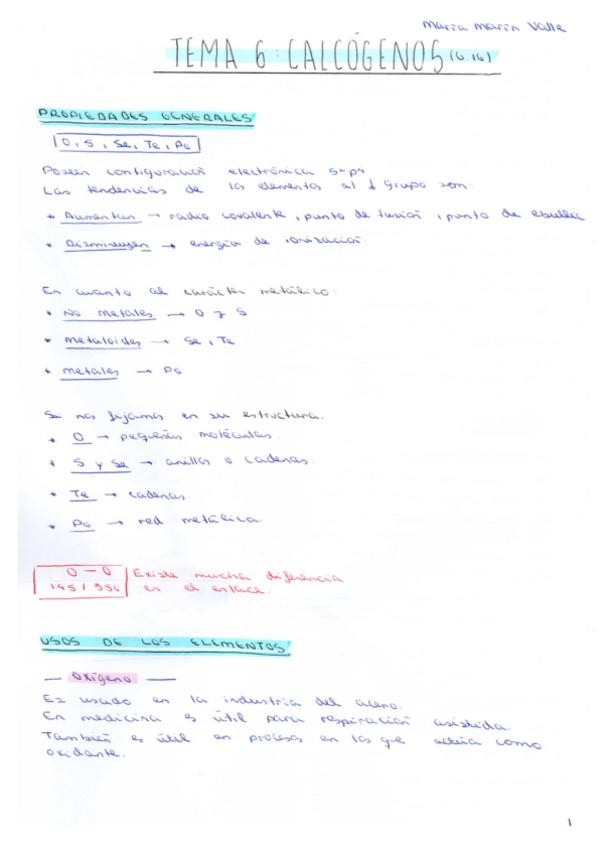 Maria Marin Valle
TEMA 6: CALCÓGENOS (G.16)
PROPIEDADES GENERALES
O, S, Se, Te, Po
Poseen configuración electrónica s²p⁴.
Las tendencias de los elementos al ↓ grupo son:
• Aumentan → radio covalente, punto de fusión, punto de ebullic
• Disminuyen → energía de ionización.
En cuanto al carácter metálico:
• No metales → O y S
• metaloides → Se, Te
• metales → Po
Si nos fijamos en su estructura.
• O → pequeñas moléculas.
• S y Se → anillos o cadenas.
• Te → cadenas
• Po → red metálica
O-O Existe mucha diferencia
145/ en el enlace.
USOS DE LOS ELEMENTOS
— Oxígeno —
Es usado en la industria del acero.
En medicina es útil para respiración asistida.
También es útil en procesos en los que actúa como
oxidante.
1